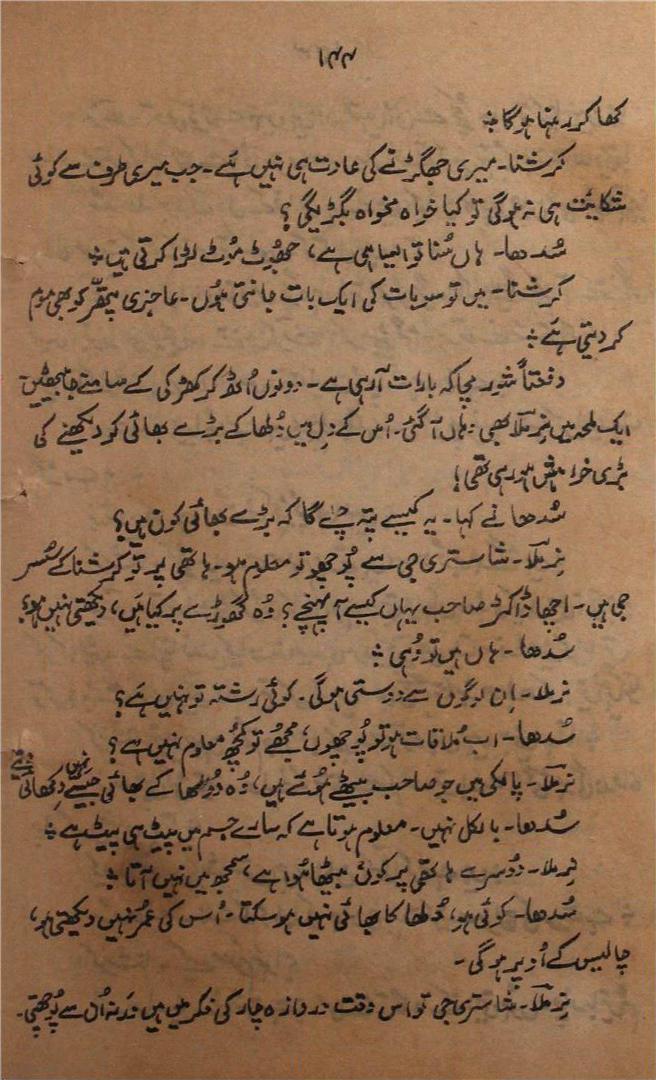 ۱۴۴
کھا کر رہنا ہوگا ؞
کرشنا۔ میری جھگڑنے کی عادت ہی نہیں ہَے۔ جب میری طرف سے کوئی
شکایت ہی نہ ہوگی تو کیا خواہ مخواہ بگڑیگی؟
سُدھا۔ ہاں سُنا تو ایسا ہی ہے، جھُوٹ مُوٹ لڑا کرتی ہیں ؞
کرشنا۔ میں تو سو بات کی ایک بات جانتی ہُوں۔ عاجزی پتھّر کو بھی موم
کر دیتی ہَے ؞
دفعتاً شور مچا کہ بارات آ رہی ہے۔ دونوں اُٹھ کر کھڑکی کے سامنے جا بیٹھیں۔
ایک لمحہ میں نِرملا بھی وہاں آ گئی۔ اُس کے دِل میں دُلھا کے بڑے بھائی کو دیکھنے کی
بڑی خواہش ہو رہی تھی!
سُدھا نے کہا۔ یہ کیسے پتہ چلے گا کہ بڑے بھائی کون ہیں؟
نِرملا۔ شاستری جی سے پُوچھو تو معلوم ہو۔ ہاتھی پر تو کرشنا کے سُسر
جی ہیں۔ اچھا ڈاکٹر صاحب یہاں کیسے آ پہنچے؟ وُہ گھوڑے پر کیا ہَیں، دیکھتی نہیں ہو؟
سُدھا۔ ہاں ہیں تو وُہی ؞
نرملا۔ اِن لوگوں سے دوستی ہوگی۔ کوئی رشتہ تو نہیں ہَے؟
سُدھا۔ اب مُلاقات ہو تو پُوچھوں، مجھے تو کچھُ معلوم نہیں ہے؟
نرملا۔ پالکی میں جو صاحب بیٹھے ہُوئے ہیں، وُہ دُولھا کے بھائی جیسے نہیں دِکھائی دیتے
سُدھا۔ بالکل نہیں۔ معلوم ہوتا ہے کہ سارے جسم میں پیٹ ہی پیٹ ہے ؞
نِرملا۔ دُوسرے ہاتھی پر کون بیٹھا ہُوا ہے، سمجھ میں نہیں آتا ؞
سُدھا۔ کوئی ہو، دُلھا کا بھائی نہیں ہو سکتا۔ اُس کی عمُر نہیں دیکھتی ہو،
چالیس کے اُوپر ہوگی۔
نِرملا۔ شاستری جی تو اس وقت دروازہ چار کی فکر میں ہیں ورنہ اُن سے پُوچھتی۔